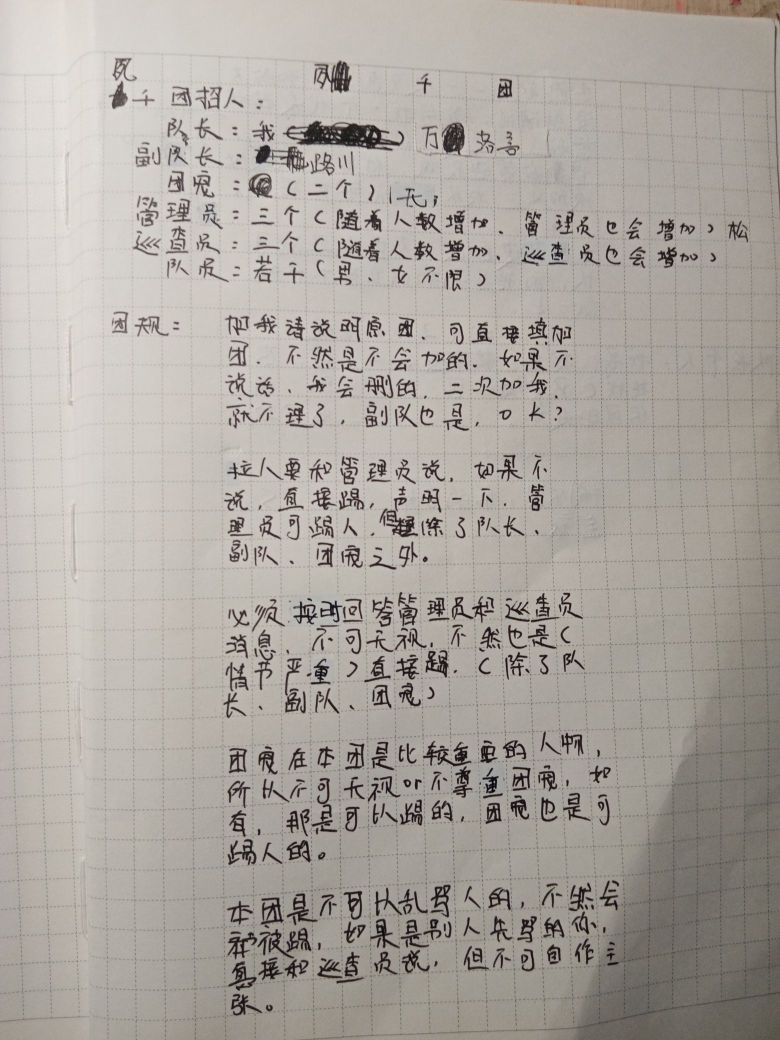 千 团
千 团招人：
队长：我 万 洛言
副队长：路川
团宠：（二个）无
管理员：三个（随着人数增加、管理员也会增加）松
巡查员：三个（随着人数增加、巡查员也会增加）
队员：若干（男、女不限）
团规： 加我请说明原因、可直接填加
团、不然是不会加的、如果不
说话、我会删的、二次加我、
就不理了，副队也是，OK？
拉人要和管理员说，如果不
说，直接踢，声明一下、管
理员可踢人，但除了队长、
副队、团宠之外。
必须按时回答管理员和巡查员
消息，不可无视，不然也是（
情节严重）直接踢．（除了队
长、副队、团宠）
团宠在本团是比较重要的人物，
所以不可无视or不尊重团宠，如
有，那是可以踢的，团宠也是可
踢人的。
本团是不可以乱骂人的，不然会
被踢，如果是别人先骂的你，
直接和巡查员说，但不可自作主
张。